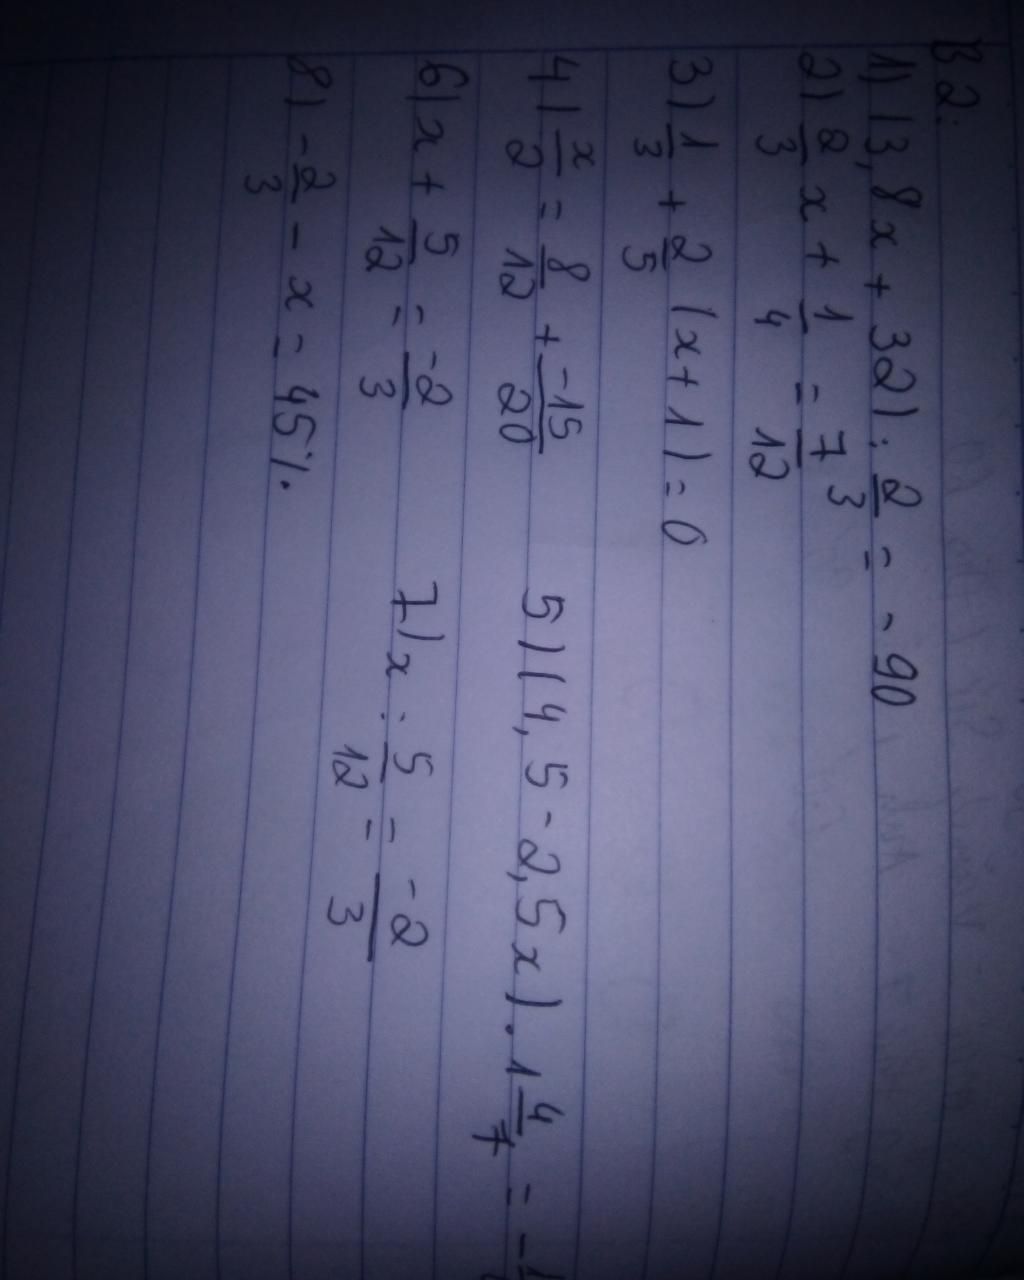 B2:
1) (3,8x + 32) : 2/3 = -90
2) 2/3 x + 1/4 = 7/12
3) 1/3 + 2/5 (x + 1) = 0
4) x/2 = 8/12 + -15/20 5) (4,5 - 2,5x) . 1 4/7 = -1
6) x + 5/12 = -2/3 7) x : 5/12 = -2/3
8) -2/3 - x = 45%.